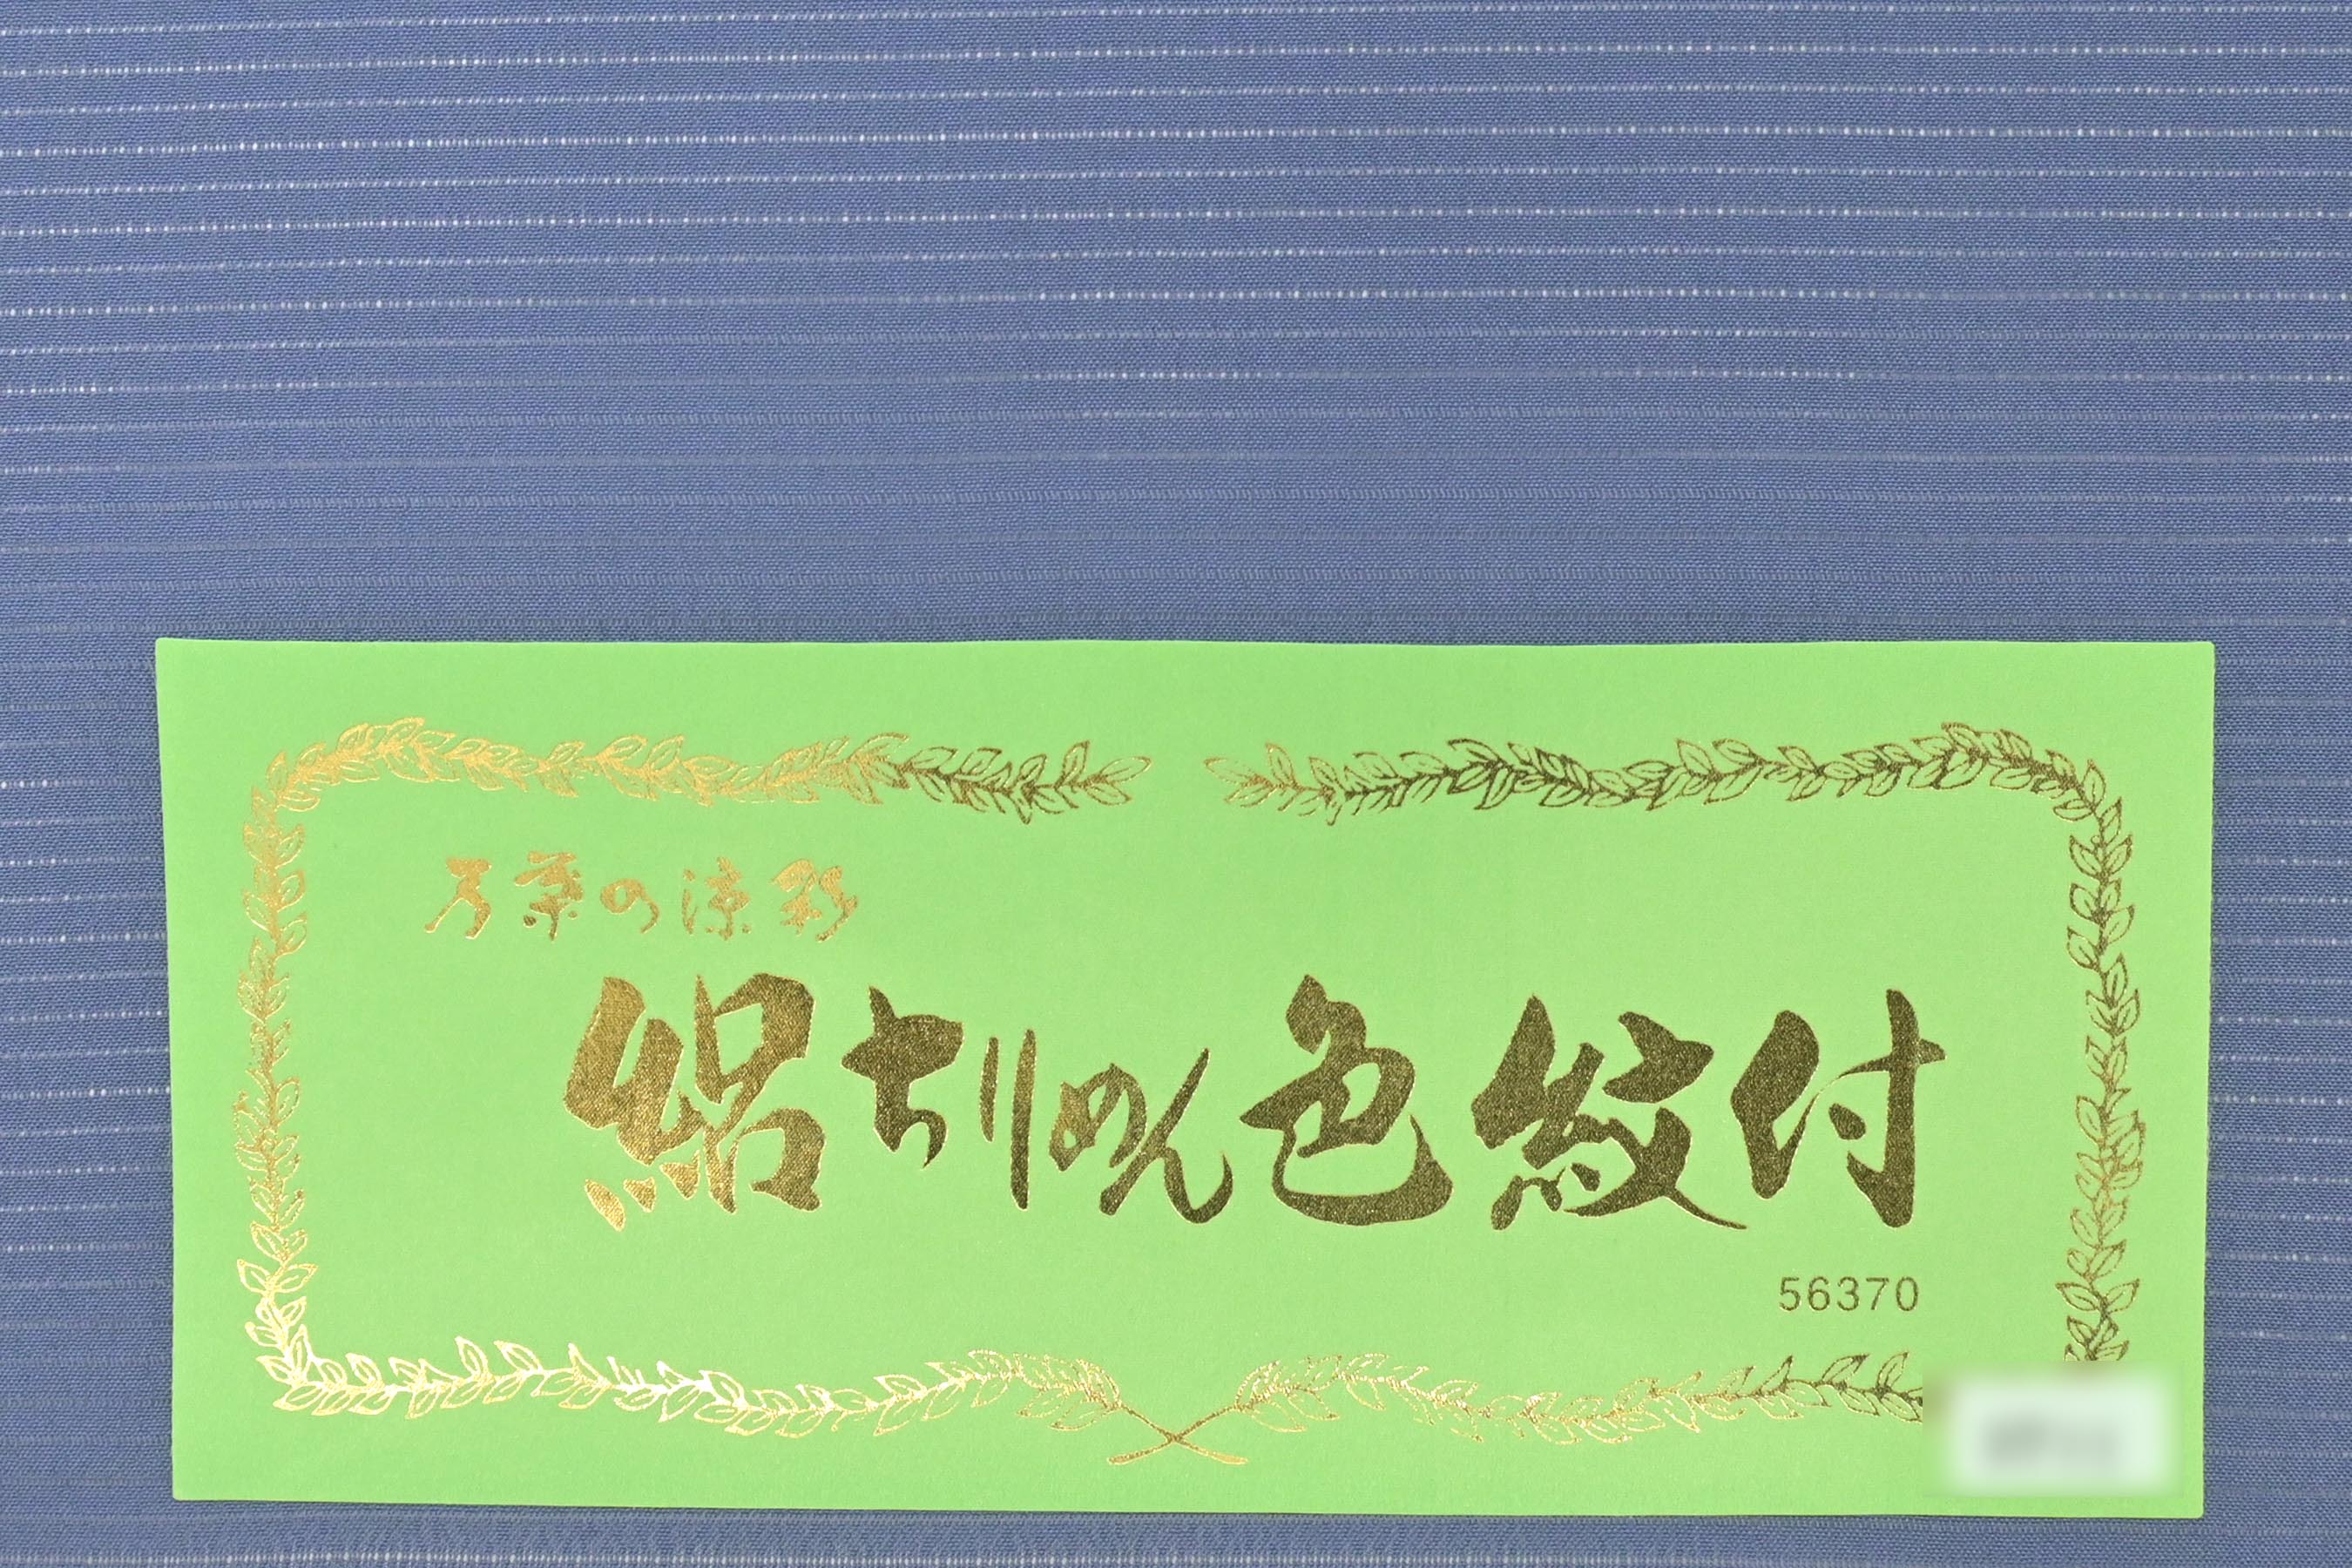 万葉の涼彩
絽ちりめん色紋付
56370